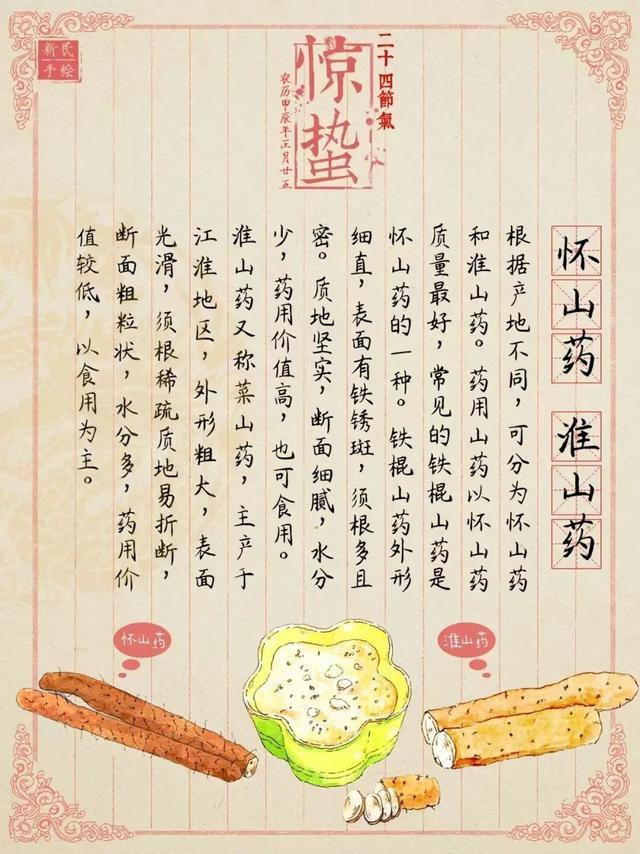 新民
手绘
二十四節氣
惊蛰
农历甲辰年正月廿五
怀山药 淮山药
根据产地不同，可分为怀山药
和淮山药。药用山药以怀山药
质量最好，常见的铁棍山药是
怀山药的一种。铁棍山药外形
细直，表面有铁锈斑，须根多且
密。质地坚实，断面细腻，水分
少，药用价值高，也可食用。
淮山药又称菜山药，主产于
江淮地区，外形粗大，表面
光滑，须根稀疏质地易折断，
断面粗粒状，水分多，药用价
值较低，以食用为主。
怀山药
淮山药